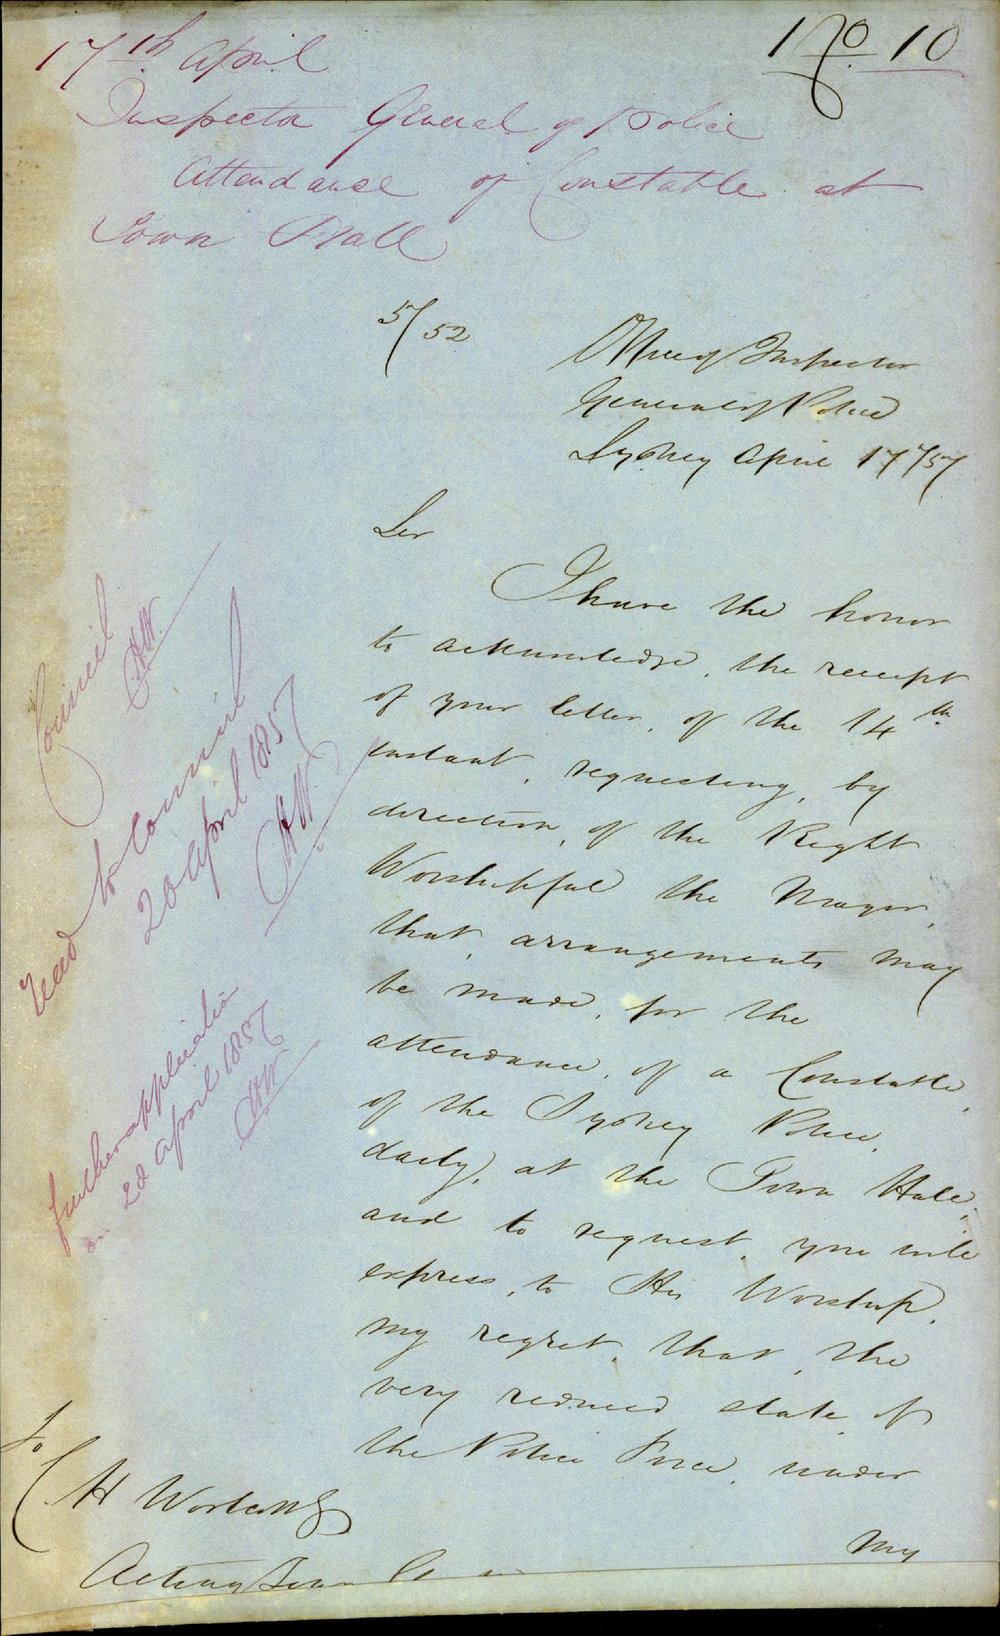 No. 10
17th April
Inspector General of Police
Attendance of Constable at
Town Hall
57/52
Office of Inspector
General of Police
Sydney April 17th/57
Sir
I have the honor
to acknowledge, the receipt
of your letter, of the 14th
instant, requesting, by
direction, of the Right
Worshipful the Mayor,
that, arrangements may
be made, for the
attendance, of a Constable,
of the Sydney Police,
daily, at the Town Hall,
and to request, you will
express, to His Worship,
my regret, that, the
very reduced state, of
the Police Force, under
my
Council
CHW.
Read to Council
20 April 1857
CHW.
further application
on 22 April 1857
CHW
To
C H Woolcott
Acting Town